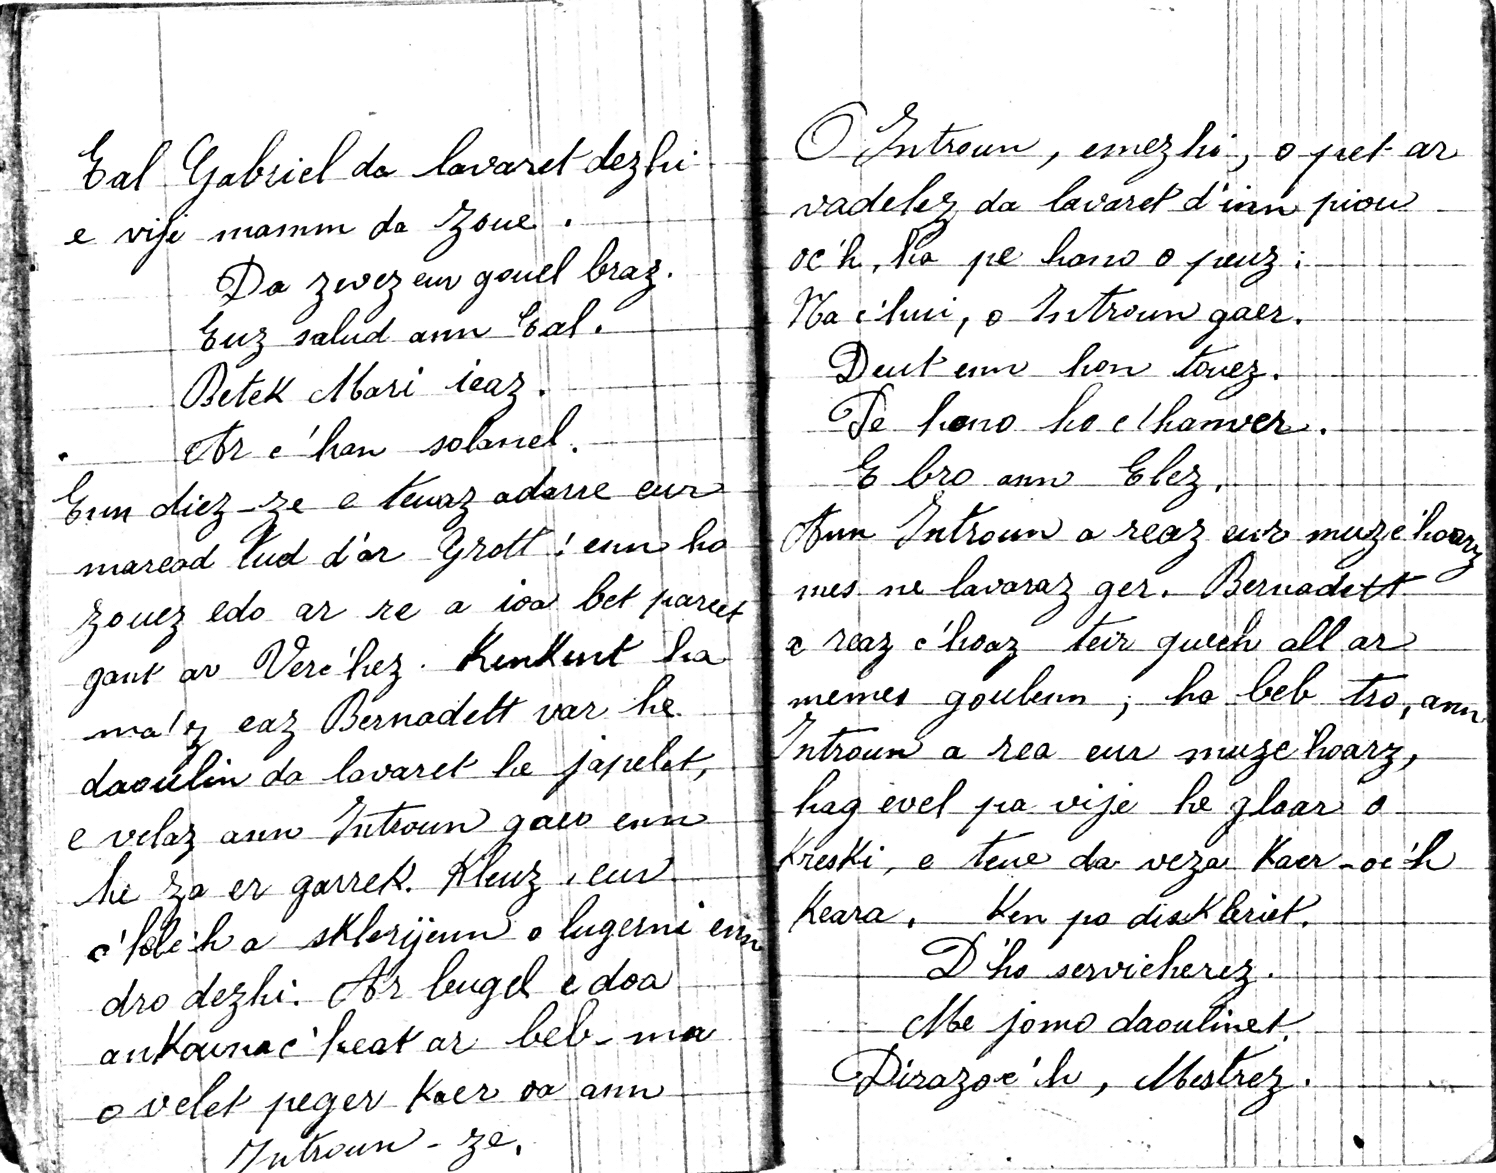 Eal Gabriel da lavaret dezhi
e vije mamm da Zoue.
Da zevez eur gouel braz.
Euz salud ann Eal.
Betek Mari ieaz.
Ar c'han solanel.
Eun diez-ze e teuaz adarre eur
maread tud d'ar Grott! eun ho
zouez edo ar re a ioa bet pareet
gant ar Verc'hez. Kenkent ha
ma'z eaz Bernadett var he
daoulin da lavaret he japelet,
e velaz ann Introun gaer enn
he za er garrek. Kleuz, eur
c'helc'h a sklerijenn o lugerni enn
dro dezhi. Ar bugel e doa
ankounac'heat ar beb-ma
o velet peger kaer oa ann
Introun-ze.
O Introun, emezhi, o pet ar
vadelez da lavaret d'inn piou
oc'h, ha pe hano o peuz:
Na c'hui, o Introun gaer.
Deut enn hon touez.
Pe hano ho c'hanver.
E bro ann Elez.
Ann Introun a reaz eur muzc'hoarz
mes ne lavaraz ger. Bernadett
a reaz c'hoaz teir gwech all ar
memes goulenn; ha beb tro, ann
Introun a rea eur muzc'hoarz,
hag evel pa vije he gloar o
kreski, e teue da veza kaer-oc'h
keara. Ken pa diskleriet.
D'ho servicherez.
Me jomo daoulinet.
Dirazoc'h, Mestrez.